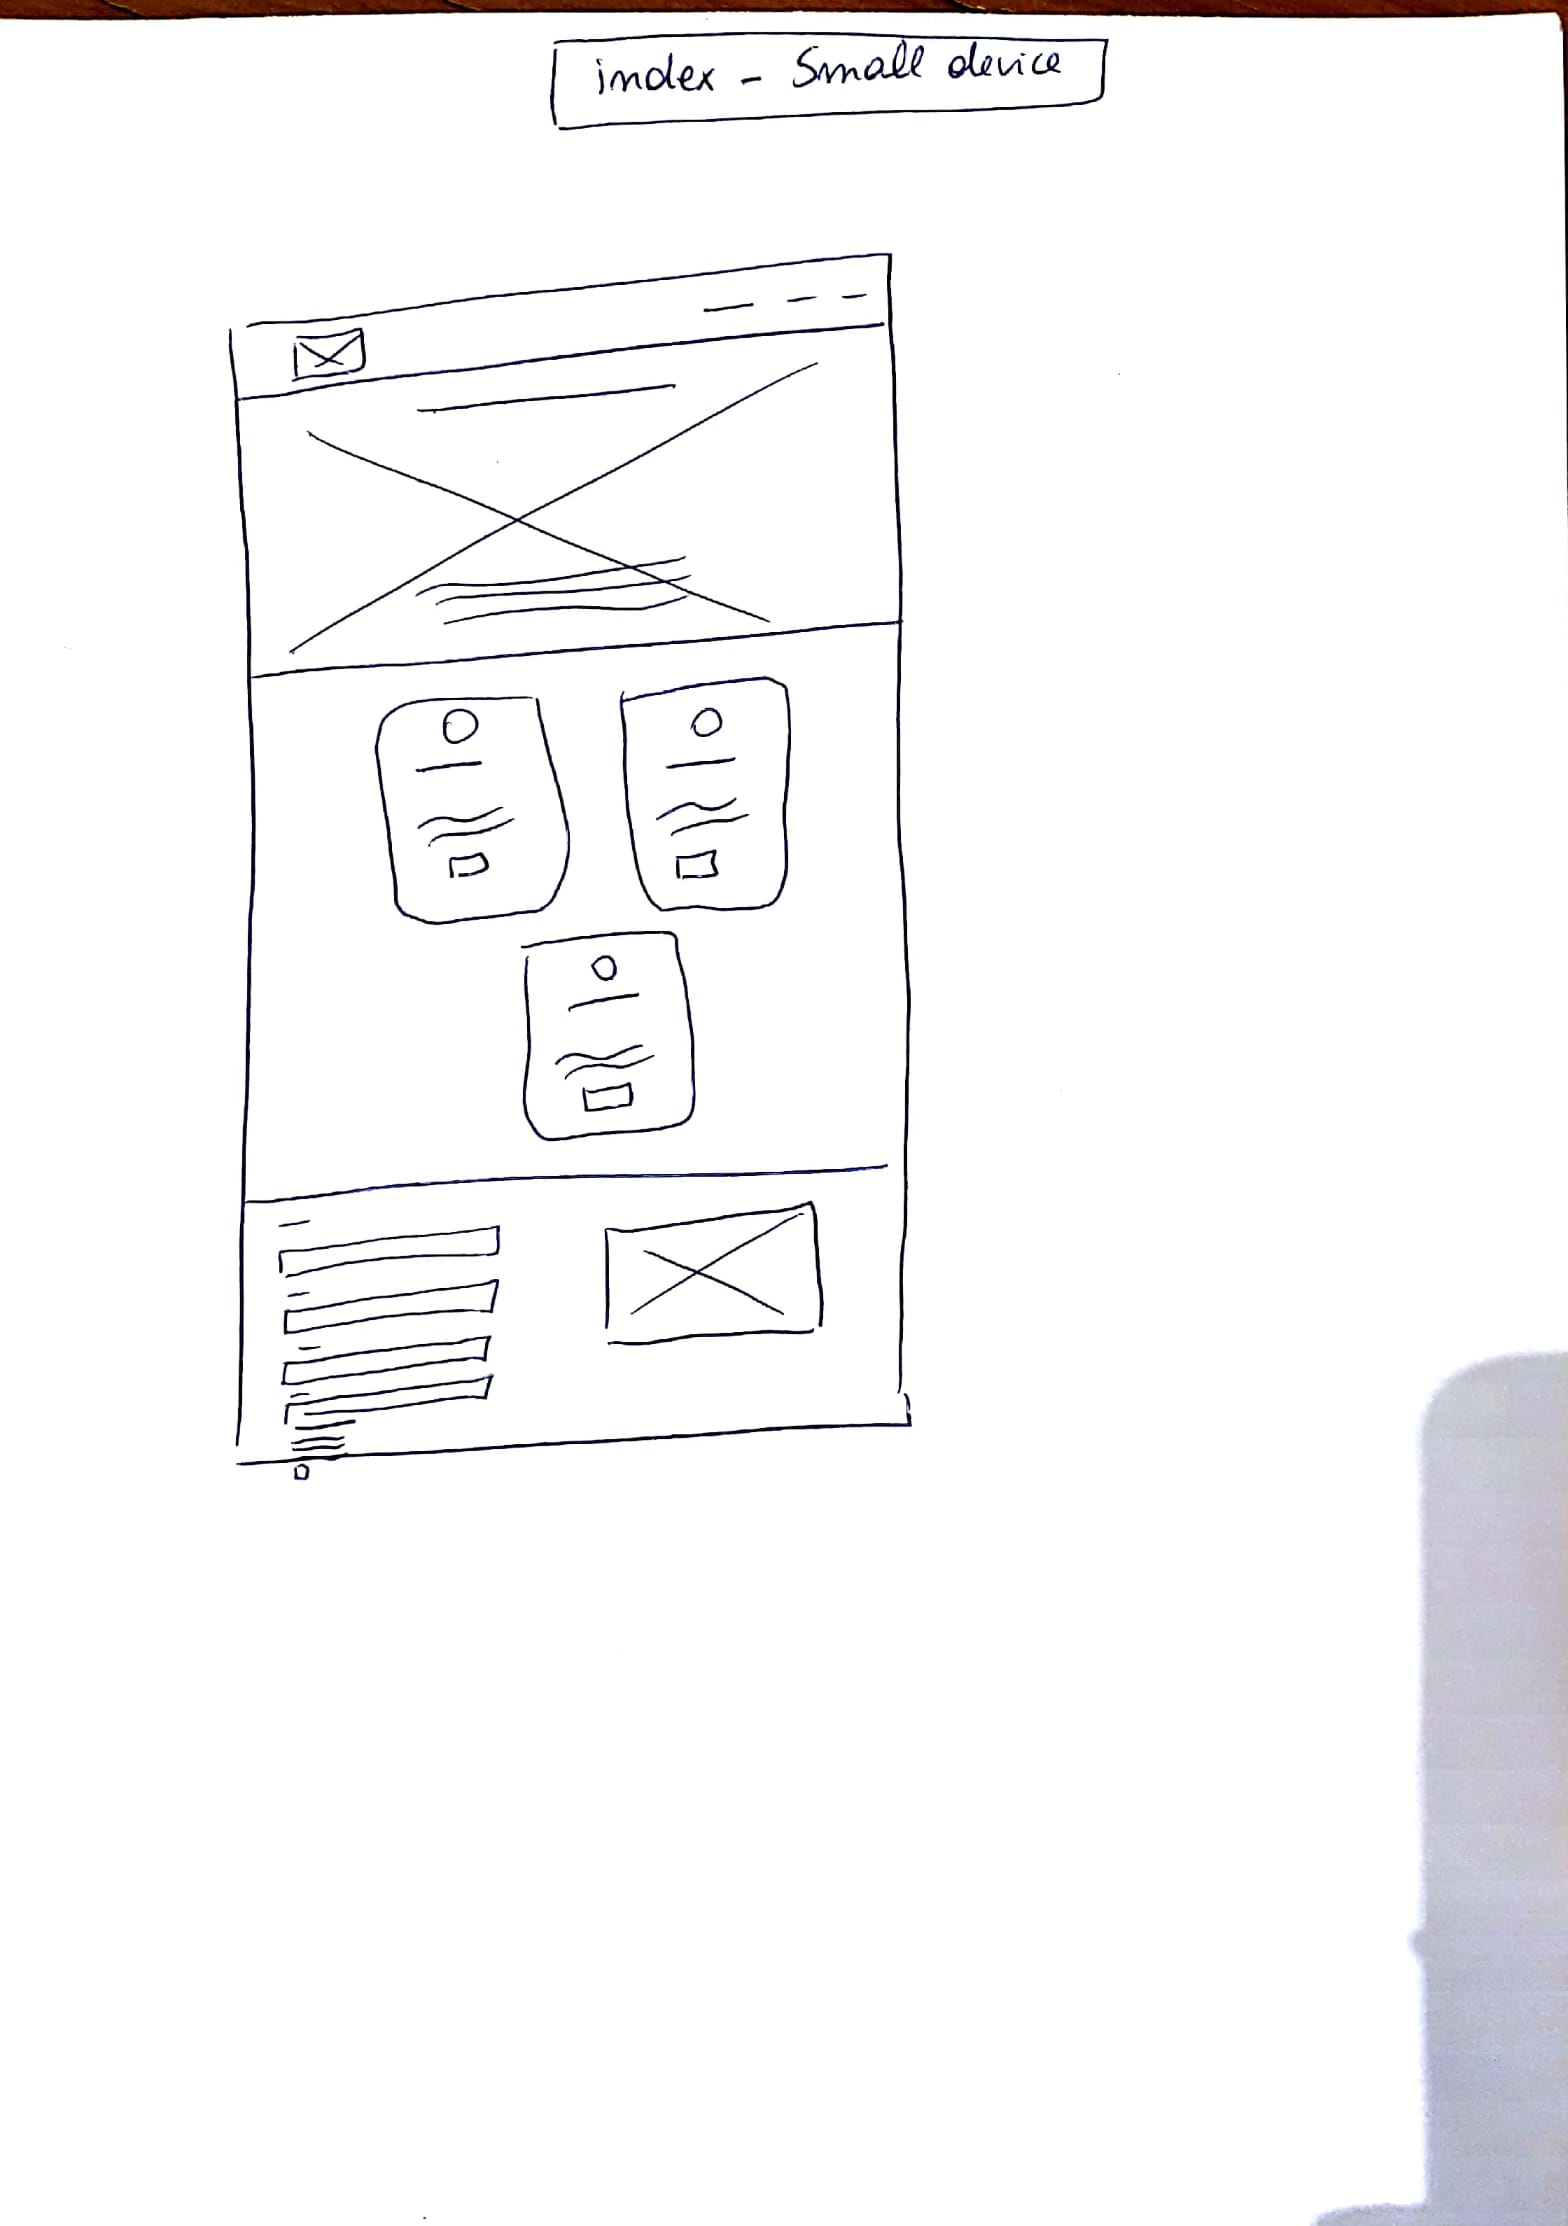 index - Small device